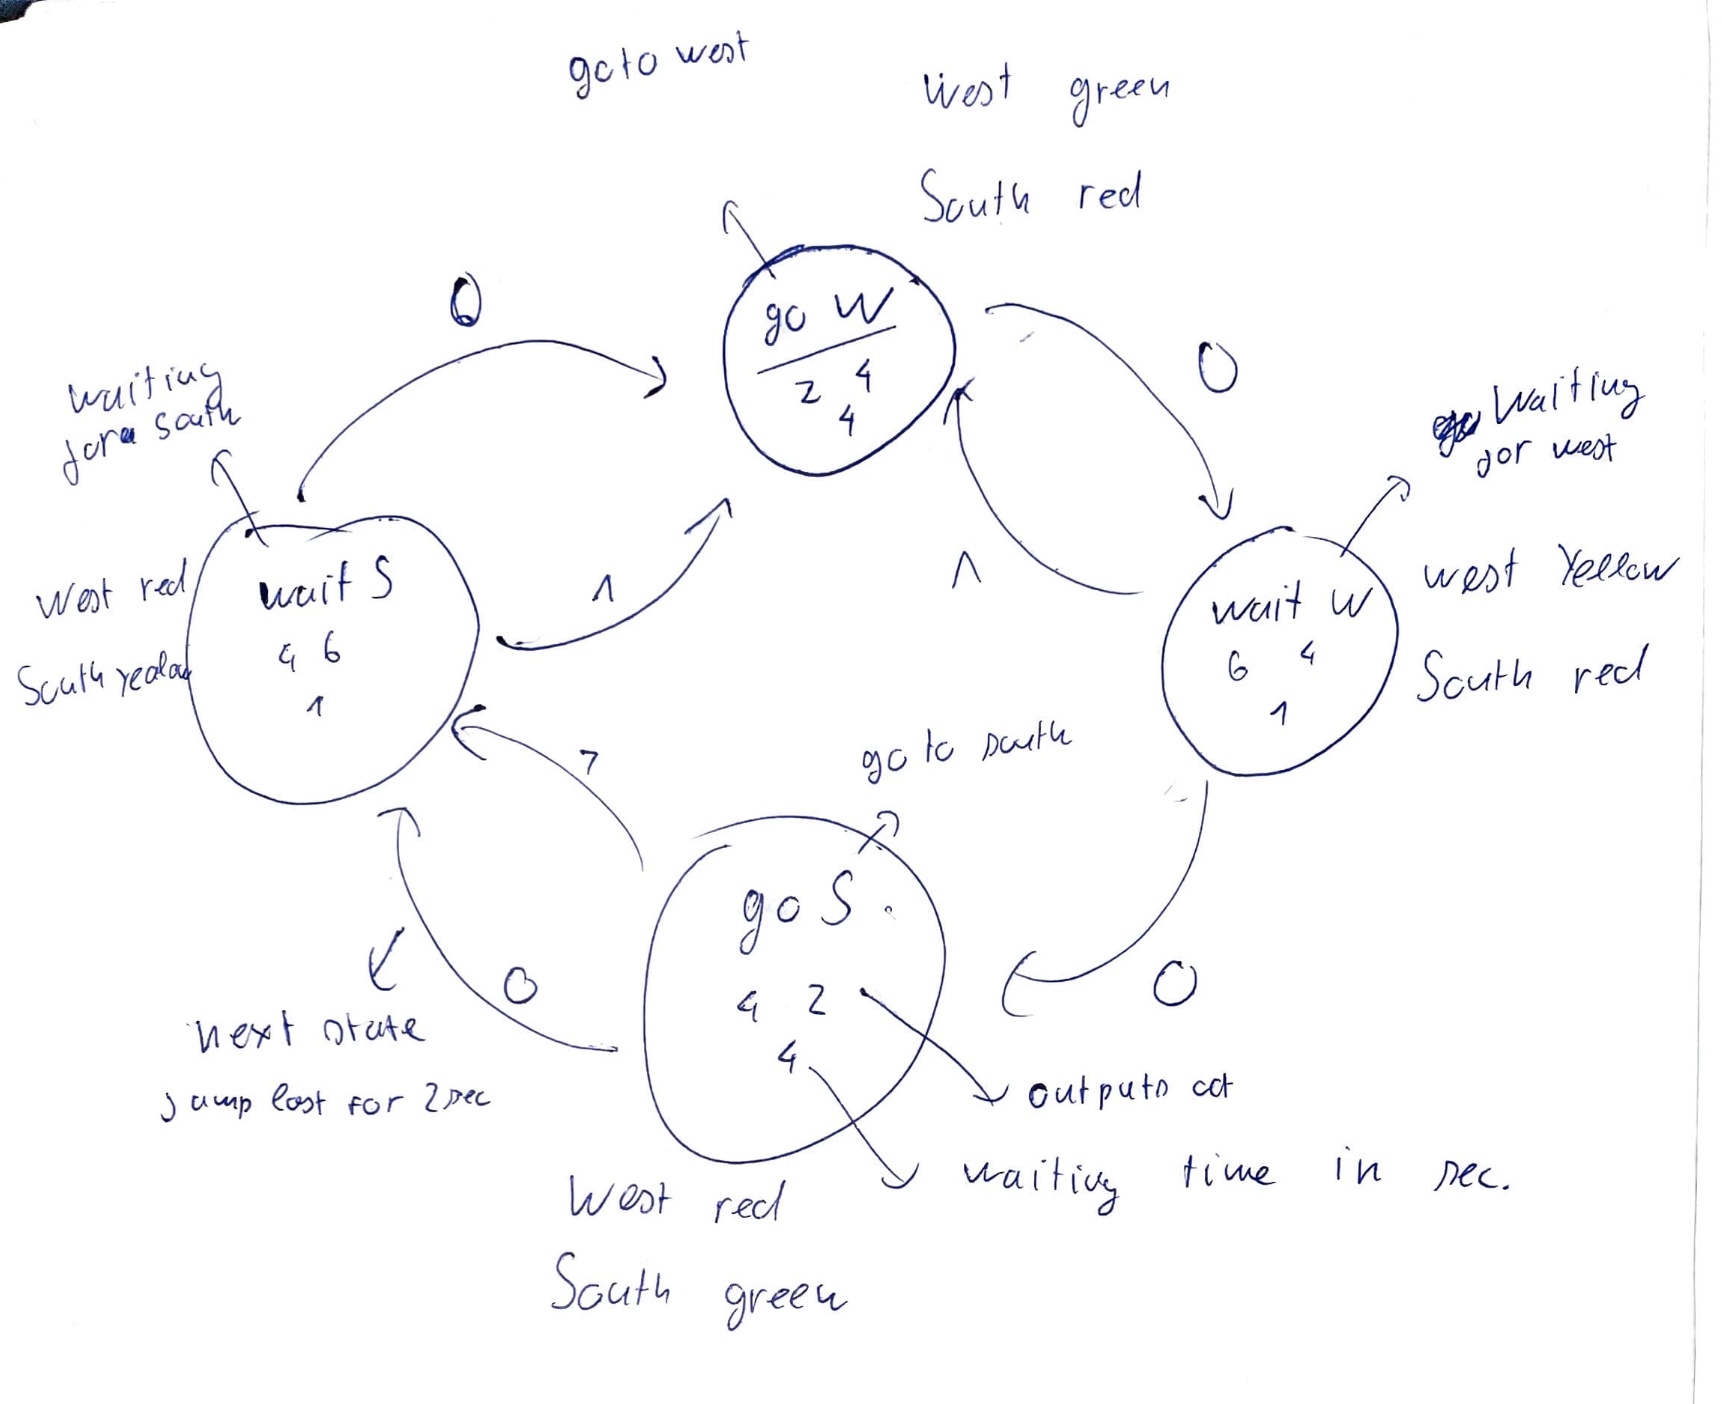 goto west
West green
South red
0
go W
2 4
4
0
waiting
for south
Waiting
for west
West red
South
wait S
4 6
1
1
1
wait W
6 4
1
West Yellow
South red
go to south
go S
4 2
4
0
0
next state
jump last for 2 sec
outputs
waiting time in sec.
West red
South green